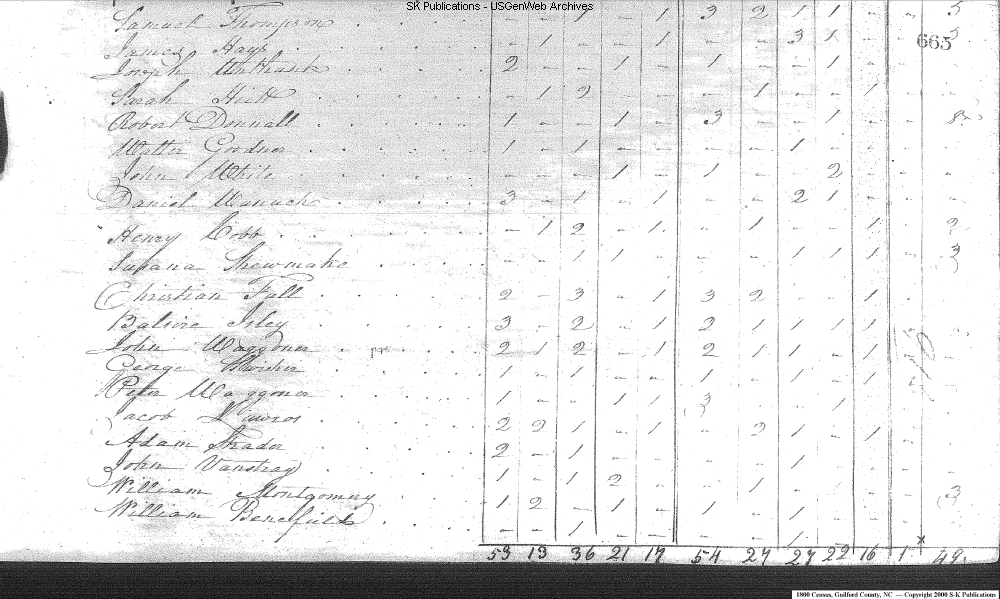 SK Publications - USGenWeb Archives
Samuel Thompson - - 1 - 1 3 2 1 1 - - 5
James Hays - 1 - - 1 - - 3 1 - - 5
665
Joseph 2 - - 1 - 1 - - 1 - - -
Sarah Hiett - 1 2 - - - 1 - - 1 - -
Robert Donnall 1 - - 1 - 3 - - 1 - - 8
1 - 1 - - - - 1 - - - -
John White - - - 1 - 1 - - 2 - - -
Daniel 3 - 1 - 1 - - 2 1 - - -
Henry Cobb - 1 2 - 1 - 1 - - 1 - 2
Susana Shewmake - - 1 1 - - - 1 1 1 - 3
Christian Fall 2 - 3 - 1 3 2 - - 1 - -
Isley 3 - 2 - 1 2 1 1 1 1 - -
John Waggoner 2 1 2 - 1 2 1 1 - 1 - -
George Swisher 1 - 1 - - 1 - 1 - 1 - -
Peter Waggoner 1 - - 1 1 3 - - 1 - - -
Jacob 2 2 1 - 1 - 2 1 - 1 - -
Adam Strader 2 - 1 - - - - 1 - - - -
John 1 - 1 2 - - 1 - - - - 3
William Montgomery 1 2 - 1 1 1 - 1 - - - -
William Benefield - - 1 - - - - 1 - - - -
53 13 36 21 17 54 27 27 22 16 1 49
1800 Census, Guilford County, NC — Copyright 2000 S-K Publications